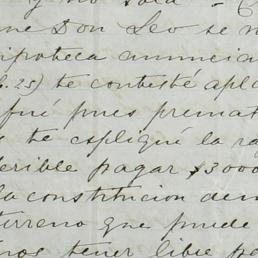 y no sola -
me Don Leo se
ipoteca anuncia
te contesté apla
fué pues premat
te expliqué la ra
ferible pagar $3000
la constitucion de
terreno que puede
nos tener libre pa